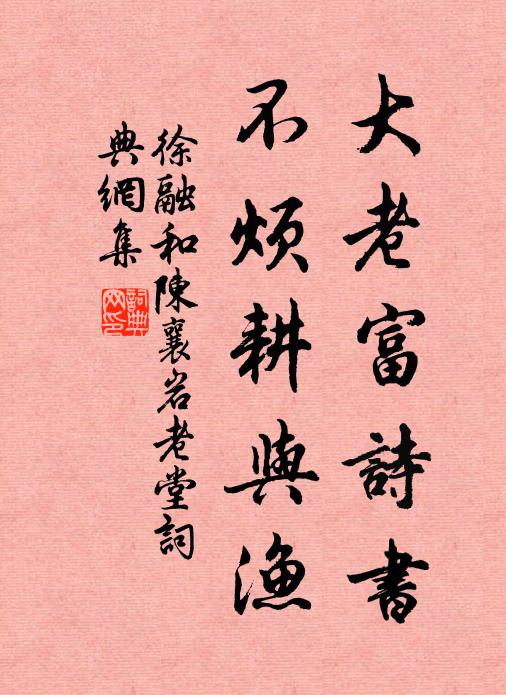 大老富詩書
不煩耕與漁
徐融和陳襄岩老堂詞
典網集
詞典網印